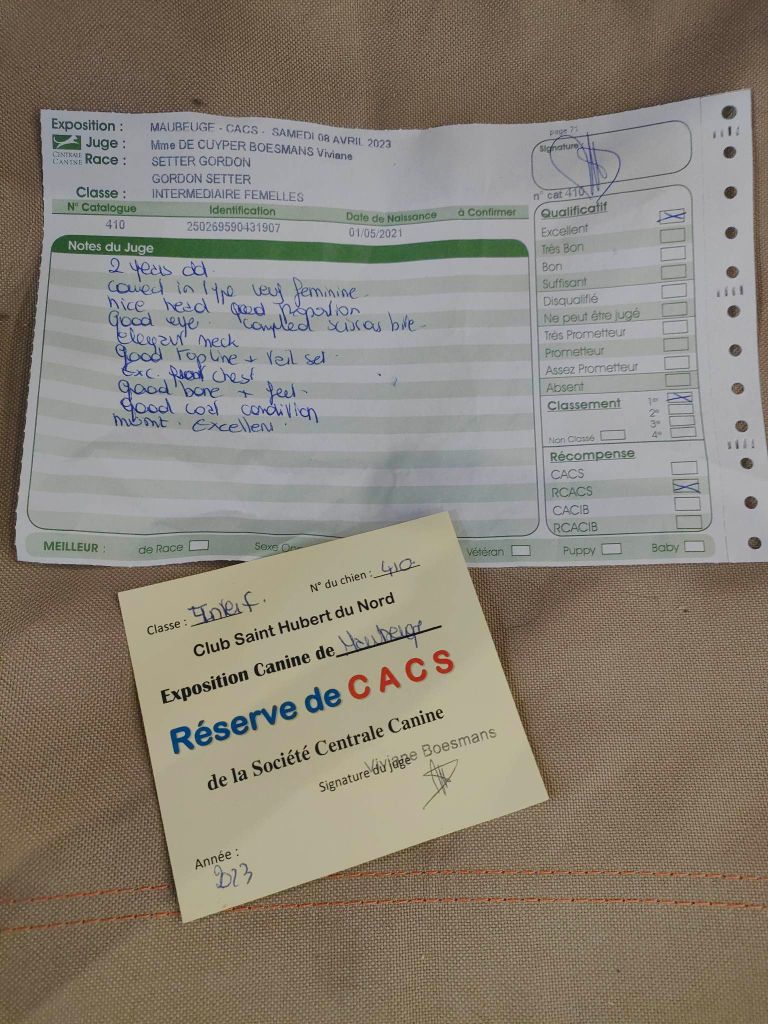 page 71
Exposition : MAUBEUGE - CACS - SAMEDI 08 AVRIL 2023
Juge : Mme DE CUYPER BOESMANS Viviane
CENTRALE CANINE
Race : SETTER GORDON
GORDON SETTER
Classe : INTERMEDIAIRE FEMELLES
Signature :
n° cat 410
N° Catalogue Identification Date de Naissance à Confirmer
410 250269590431907 01/05/2021
Notes du Juge
2 years old.
correct in type very feminine.
nice head good proportion
Good eye. scissors bite.
elegant neck
good topline + tail set.
exc. chest
good bone + feet.
good coat condition
mvmt. Excellent.
Qualificatif
Excellent
Très Bon
Bon
Suffisant
Disqualifié
Ne peut être jugé
Très Prometteur
Prometteur
Assez Prometteur
Absent
Classement 1er
2e
3e
Non Classé 4e
Récompense
CACS
RCACS
CACIB
RCACIB
MEILLEUR : de Race Sexe Vétéran Puppy Baby
Classe : Interf. N° du chien : 410
Club Saint Hubert du Nord
Exposition Canine de Maubeuge
Réserve de CACS
de la Société Centrale Canine
Viviane Boesmans
Signature du juge
Année :
2023